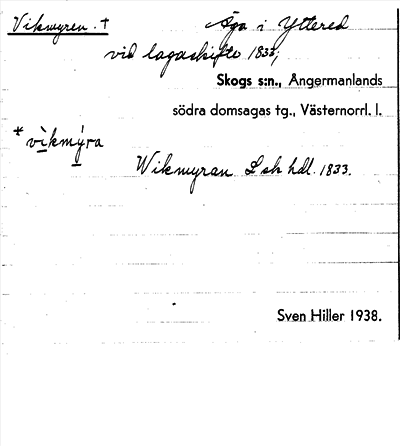 Vikmyren. † Äga i Yttered
vid lagaskifte 1833;
Skogs s:n., Ångermanlands
södra domsagas tg., Västernorrl. l.
* vìkmýra
Wikmyran L sk hdl. 1833.
Sven Hiller 1938.